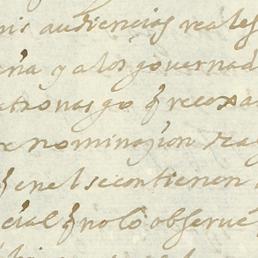 mis audiencias reales
eña y a los governad
atronasgo q̃ recoxa
e nominaçion rea
q̃ en el se contienen
cial q̃ no lo observe